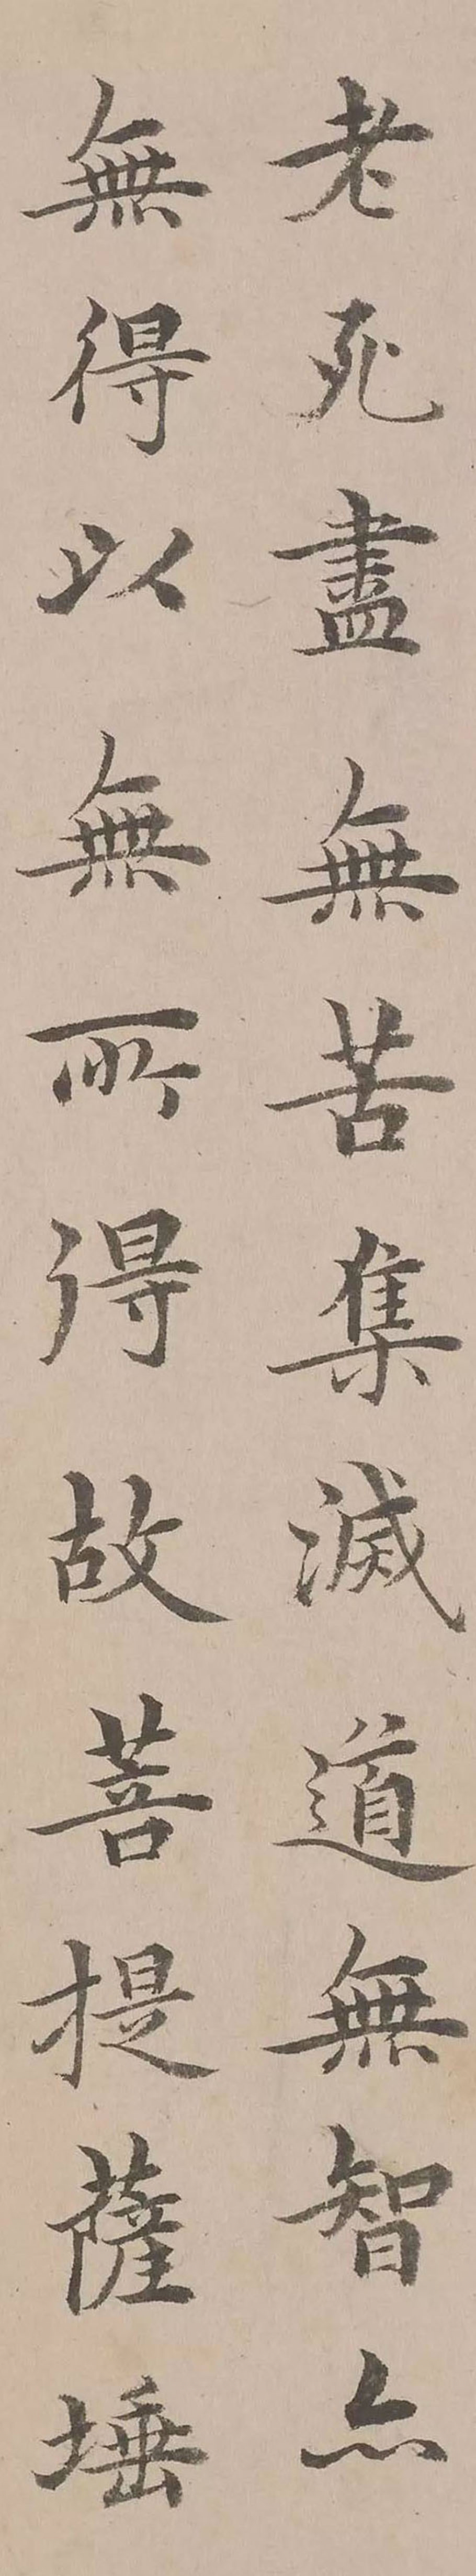 老死盡無苦集滅道無智亦
無得以無所得故菩提薩埵